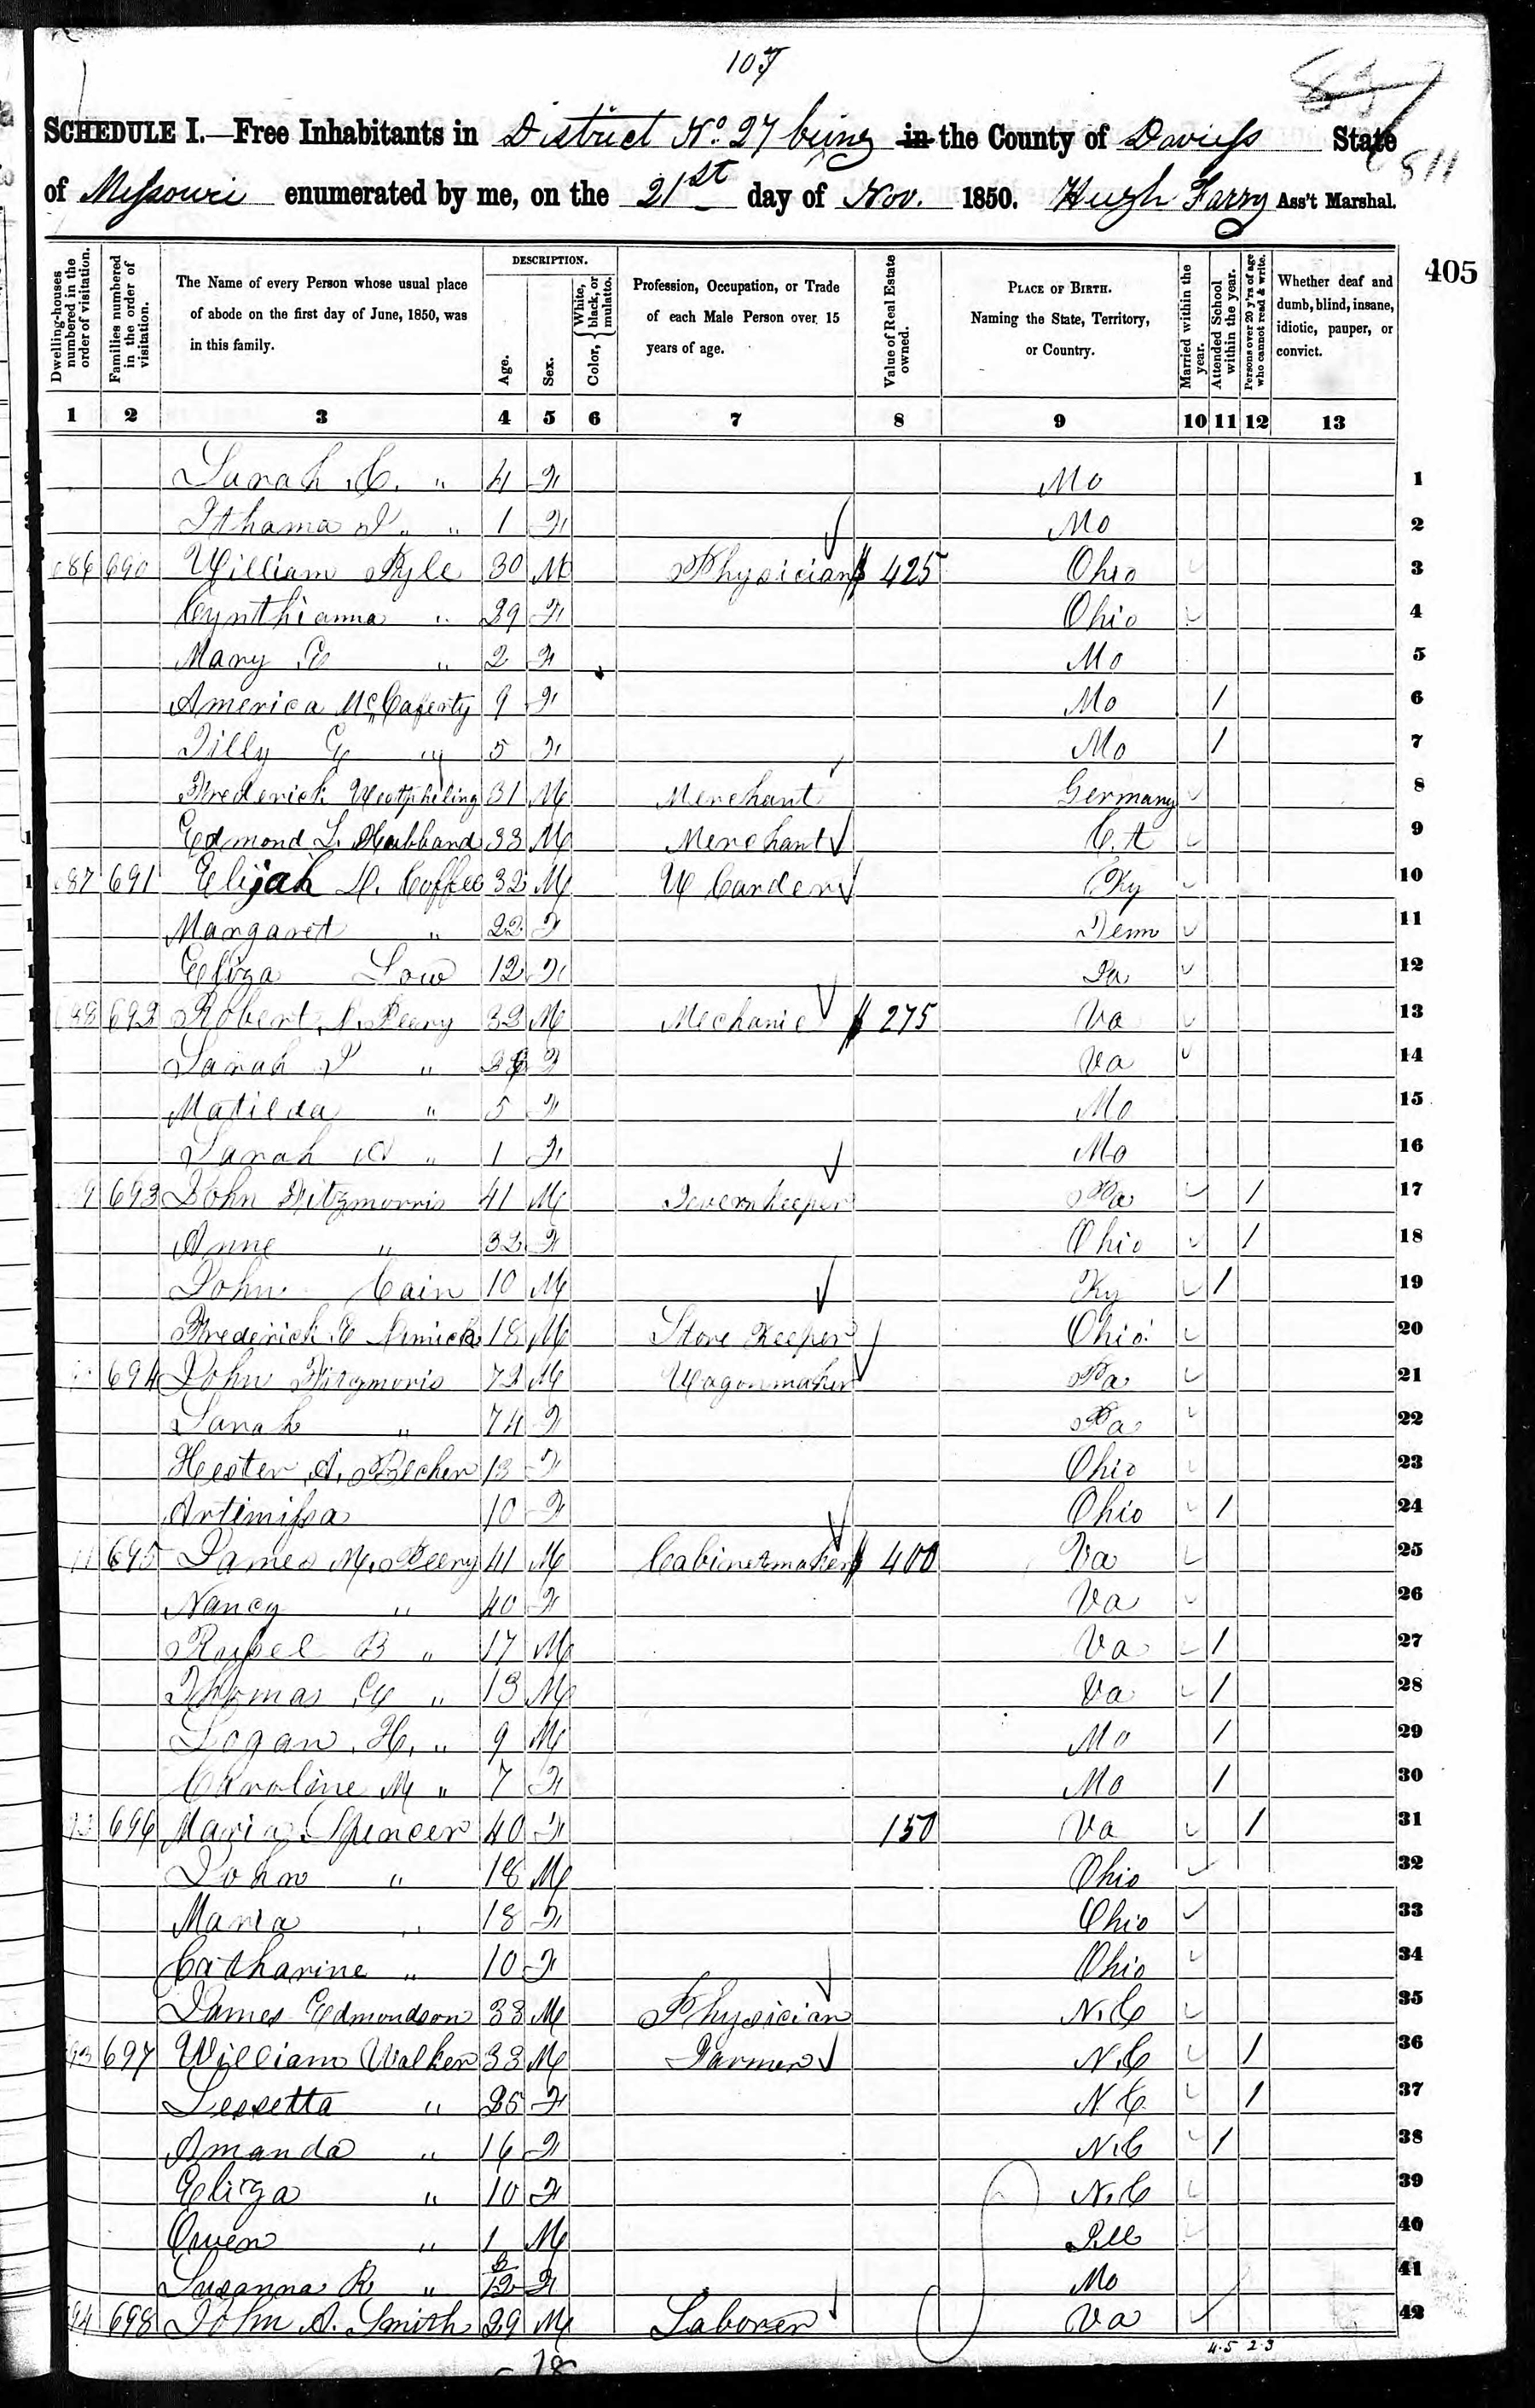 107
SCHEDULE I.—Free Inhabitants in District No. 27 being in the County of Daviess State
811
of Missouri enumerated by me, on the 21st day of Nov. 1850. Hugh Farry Ass't Marshal.
405
Dwelling-houses numbered in the order of visitation.
Families numbered in the order of visitation.
The Name of every Person whose usual place of abode on the first day of June, 1850, was in this family.
DESCRIPTION.
Age.
Sex.
Color, { White, black, or mulatto.
Profession, Occupation, or Trade of each Male Person over 15 years of age.
Value of Real Estate owned.
PLACE OF BIRTH. Naming the State, Territory, or Country.
Married within the year.
Attended School within the year.
Persons over 20 y'rs of age who cannot read & write.
Whether deaf and dumb, blind, insane, idiotic, pauper, or convict.
1 2 3 4 5 6 7 8 9 10 11 12 13
Sarah C. " 4 F Mo 1
1 F Mo 2
86 690 William Pyle 30 M Physician $ 425 Ohio 3
Cynthianna " 29 F Ohio 4
Mary E " 2 F Mo 5
America McCaferty 9 F Mo 1 6
Tilly E " 5 F Mo 1 7
Frederick 31 M Merchant Germany 8
Edmond L. 33 M Merchant C.t 9
87 691 Elijah H. Coffee 32 M W Carder Ky 10
Margaret " 22 F Tenn 11
Eliza Low 12 F Ia 12
88 692 Robert Peery 32 M Mechanic $ 275 Va 13
Sarah " F Va 14
Matilda " 5 F Mo 15
Sarah " 1 F Mo 16
693 John Fitzmorris 41 M Tavernkeeper Pa 1 17
Anne " 32 F Ohio 1 18
John Cain 10 M Ky 1 19
Frederick E 18 M Store Keeper Ohio 20
694 John Fitzmoris 72 M Wagonmaker Pa 21
Sarah " 74 F Pa 22
Hester A. 13 F Ohio 23
Artimissa 10 F Ohio 1 24
695 James M. Peery 41 M Cabinetmaker $ 400 Va 25
Nancy " 40 F Va 26
Russel B " 17 M Va 1 27
Thomas " 13 M Va 1 28
Logan H. " 9 M Mo 1 29
Caroline M " 7 F Mo 1 30
696 Maria Spencer 40 F 150 Va 1 31
John " 18 M Ohio 32
Maria " 18 F Ohio 33
Catharine " 10 F Ohio 34
James Edmondson 33 M Physician N.C 35
93 697 William Walker 33 M Farmer N.C 1 36
Lessetta " 35 F N C 1 37
Amanda " 16 F N.C 1 38
Eliza " 10 F N.C 39
Owen " 1 M Ill 40
Susanna R " F Mo 41
94 698 John A. Smith 29 M Laborer Va 42
4.5 2.3
18